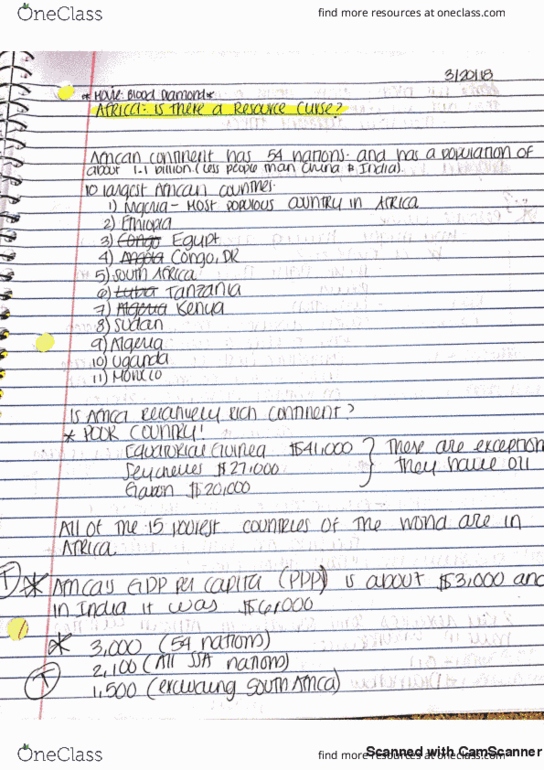 OneClass
find more resources at oneclass.com
3/20/18
* Movie: Blood Diamond *
Africa: Is there a Resource Curse?
African continent has 54 nations. and has a population of
about 1.1 billion. (Less people than China & India).
10 largest African countries.
1) Nigeria - MOST POPULOUS COUNTRY IN AFRICA
2) Ethiopia
3) Congo Egypt
4) Angola Congo, DR
5) South Africa
6) Tanzania
7) Algeria Kenya
8) Sudan
9) Algeria
10) Uganda
11) Morocco
Is Africa relatively rich continent?
* POOR COUNTRY!
Equatorial Guinea $41,000 } These are exception
Seychelles $27,000 they have oil
Gabon $20,000
All of the 15 poorest countries of the world are in
Africa.
T * Africa's GDP per capita (PPP) is about $3,000 and
in India it was $6,000
* 3,000 (54 nations)
T 2,100 (All SSA nations)
1,500 (excluding South Africa)
OneClass
find more resources at oneclass.com
Scanned with CamScanner